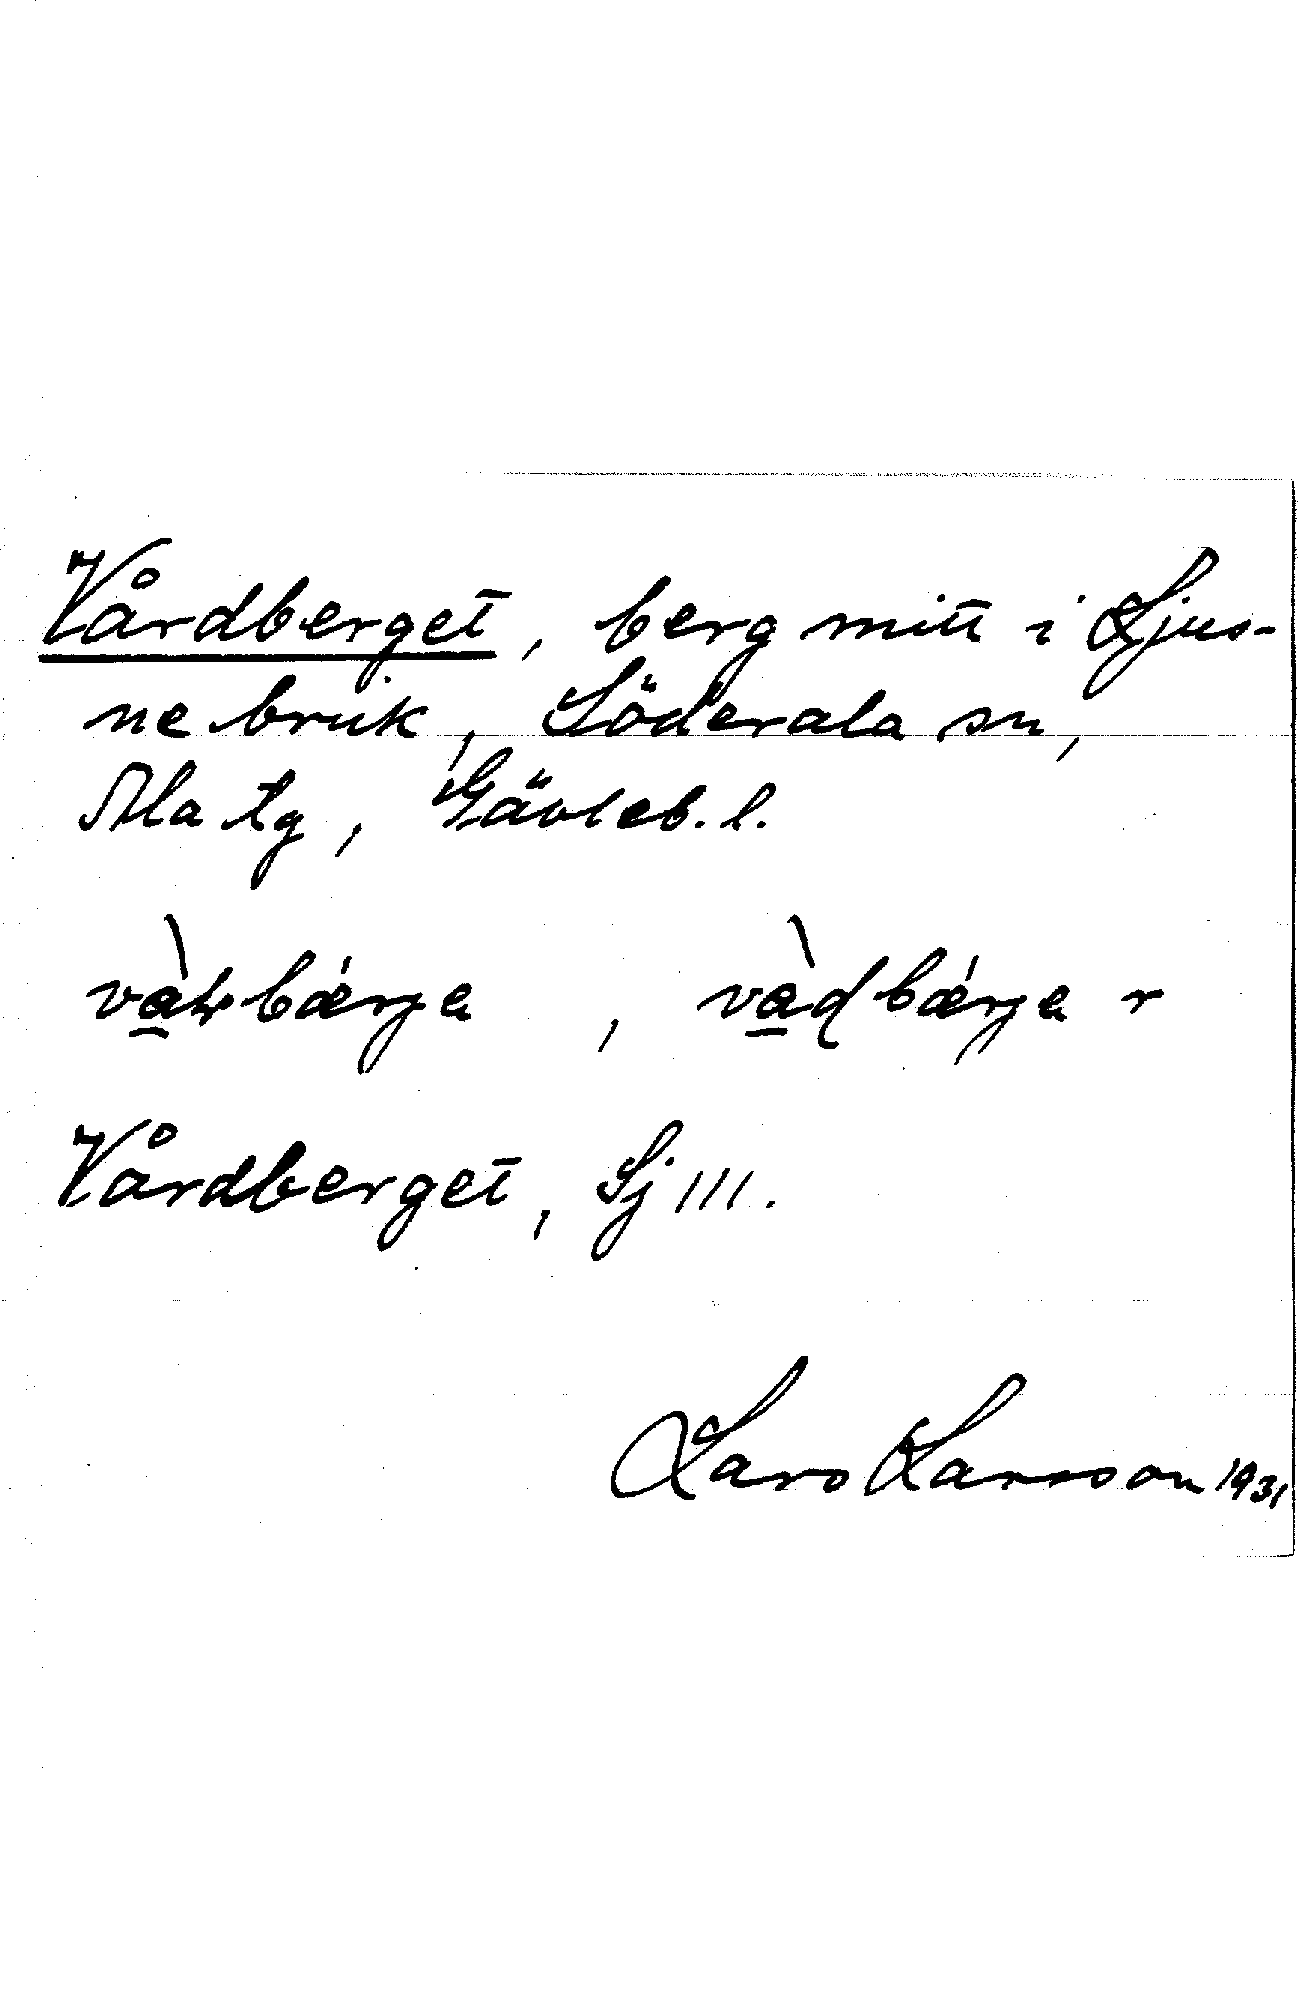 Vårdberget, berg mitt i Ljus-
ne bruk, Söderala sn,
Ala tg, Gävleb. l.
, r
Vårdberget, Sj 111.
Lars Larsson 1931